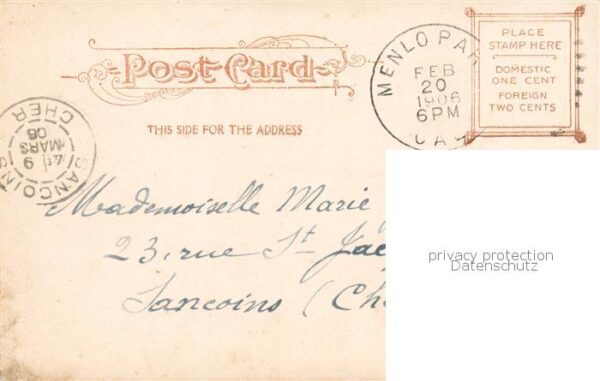 Post Card
THIS SIDE FOR THE ADDRESS
PLACE
STAMP HERE
DOMESTIC
ONE CENT
FOREIGN
TWO CENTS
MENLO PAR
FEB
20
1906
6 PM
CAL
SANCOINS
9
MARS
06
CHER
Mademoiselle Marie
23, rue St Jac
Sancoins (Ch
privacy protection
Datenschutz